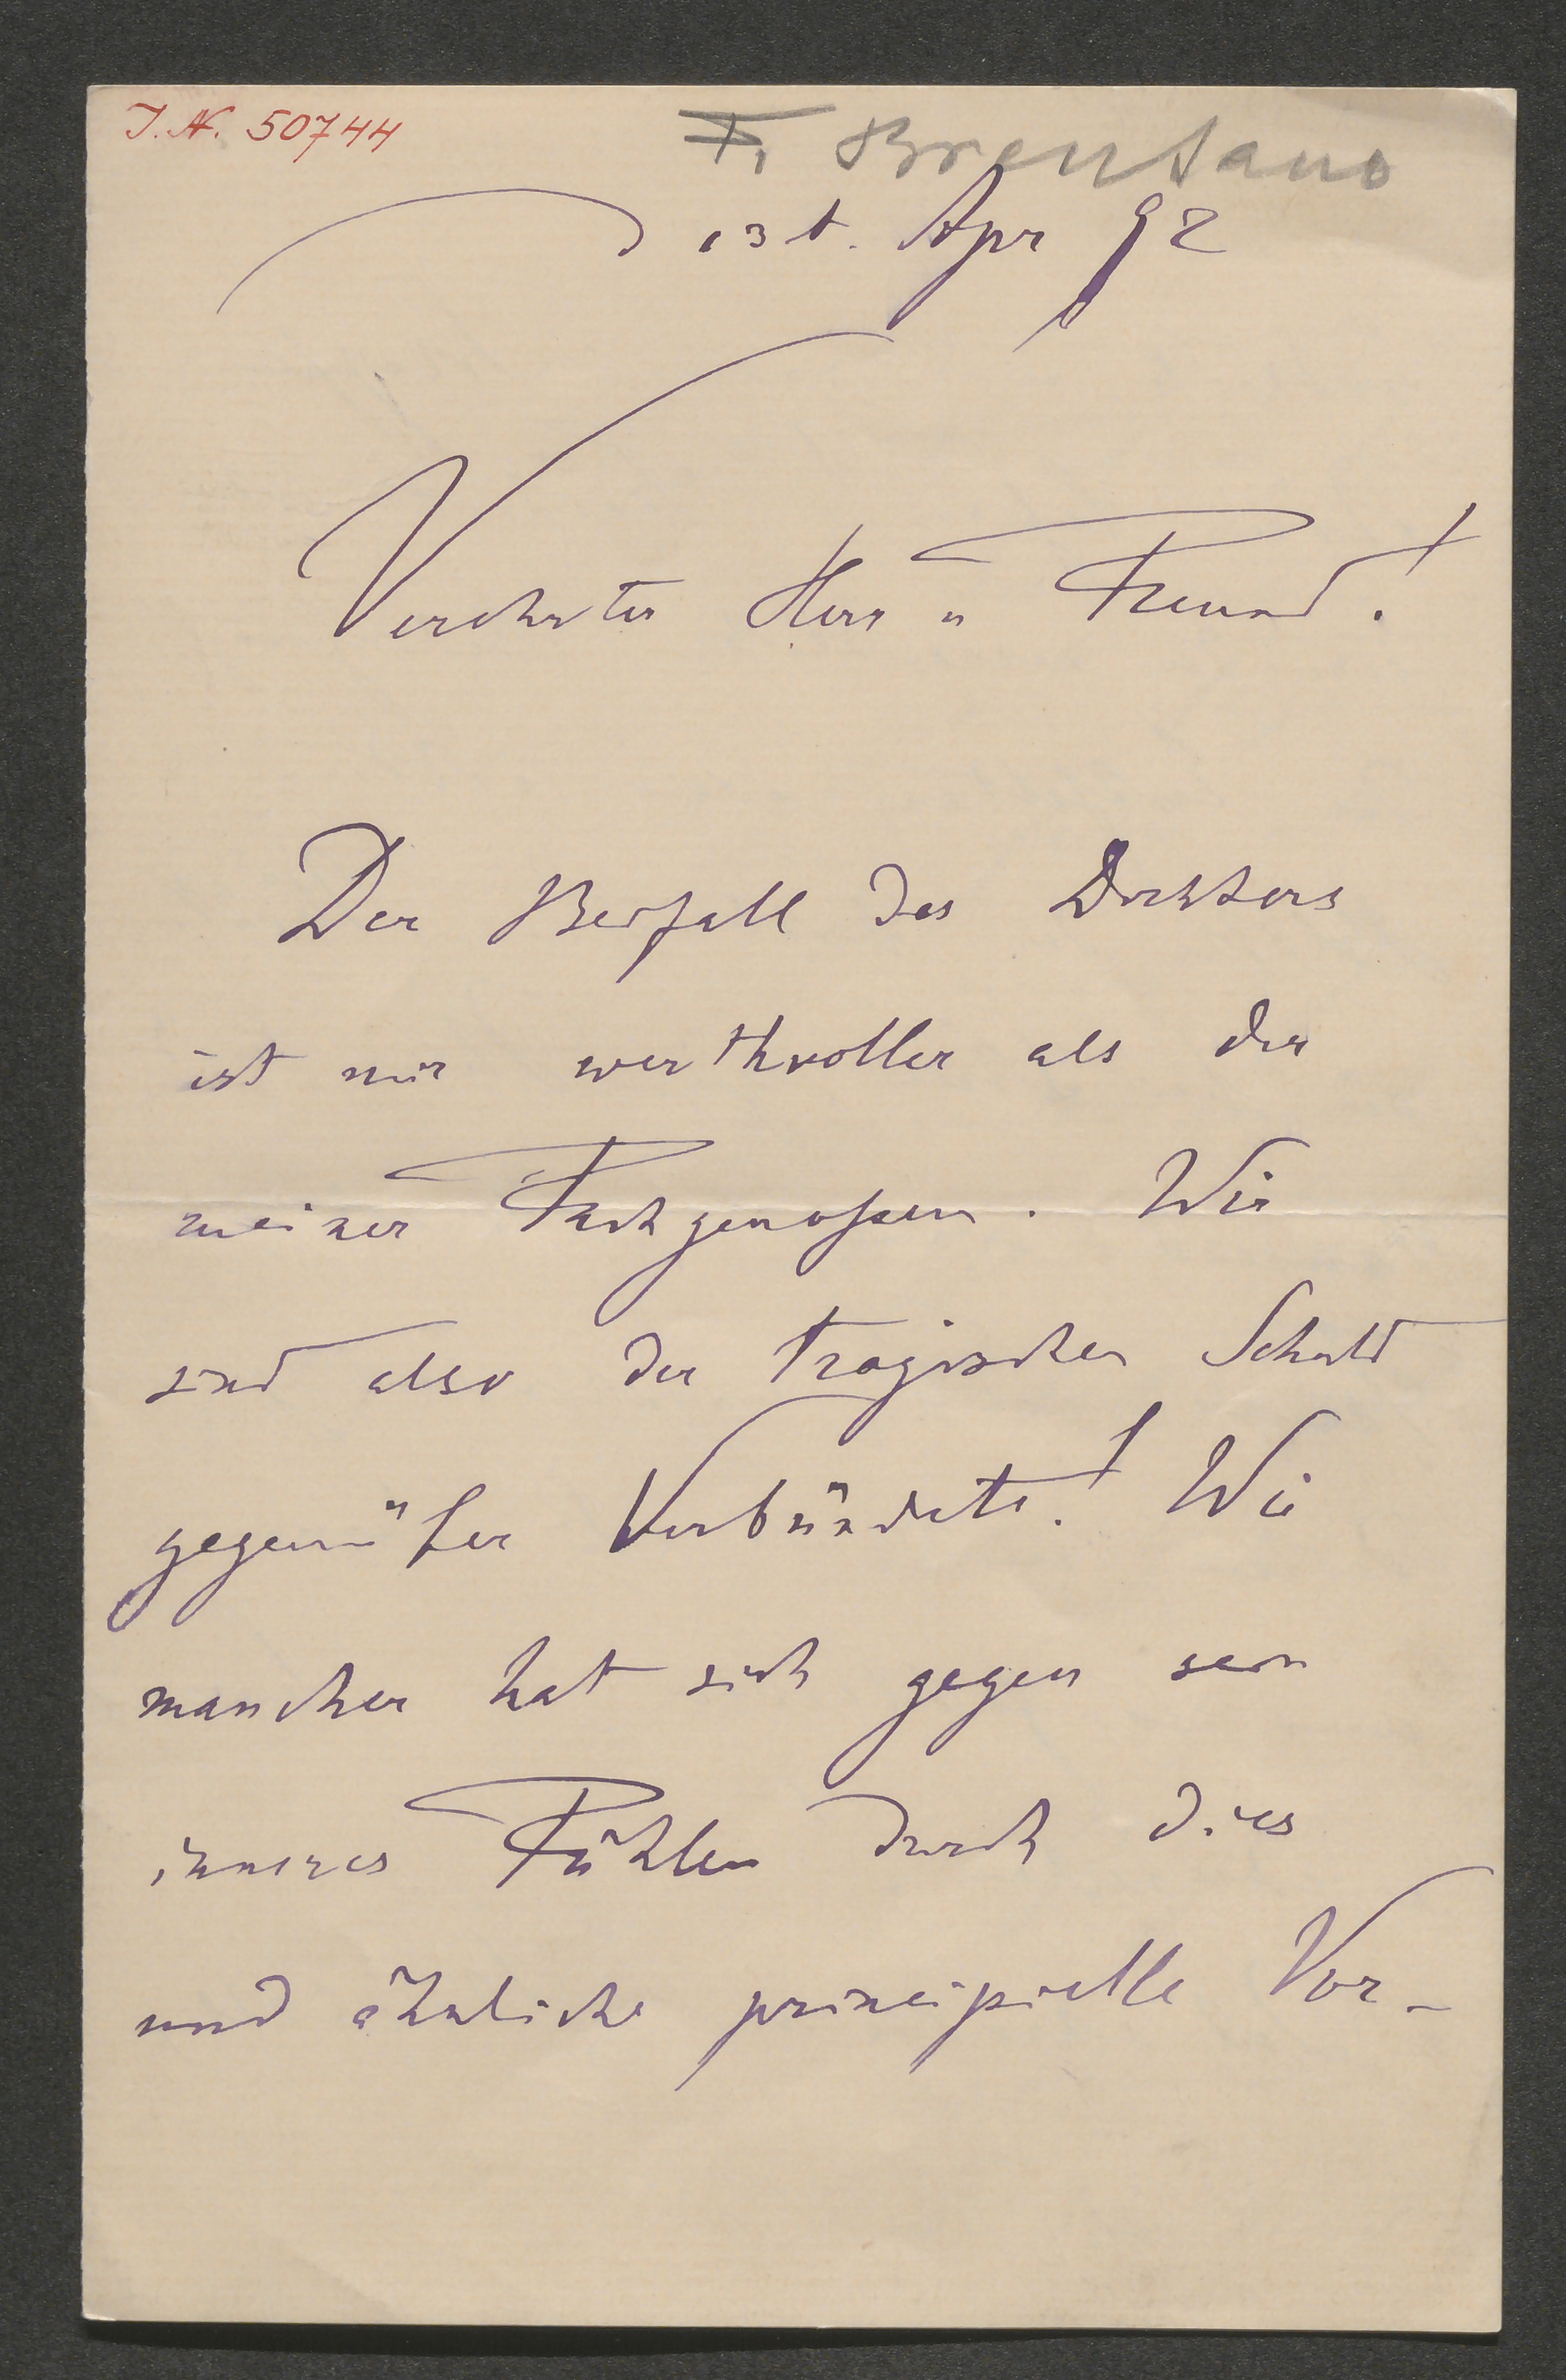 J. N. 50744
F. Brentano
13t. Apr 92
Verehrter Herr u Freund!
Der Beifall des Dichters
ist mir werthvoller als der
meiner Fachgenossen. Wir
sind also der tragischen Schuld
gegenüber Verbündete! Wie
mancher hat sich gegen sein
inneres Fühlen durch dies
und ähnliche principielle Vor-